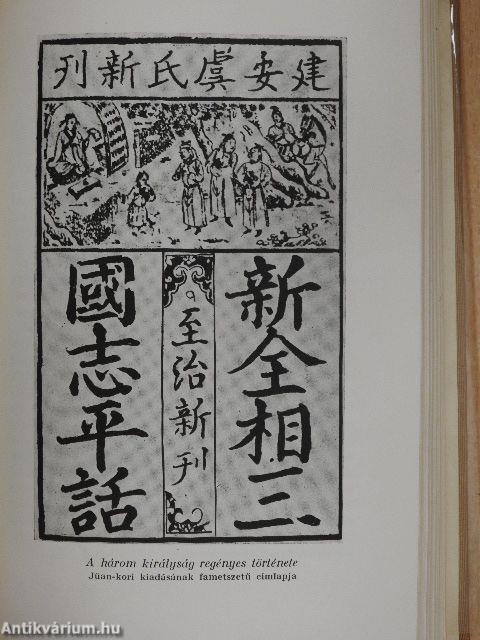 建安虞氏新刊
新全相三
國志平話
至治新刊
A három királyság regényes története
Jüan-kori kiadásának fametszetű címlapja
Antikvárium.hu